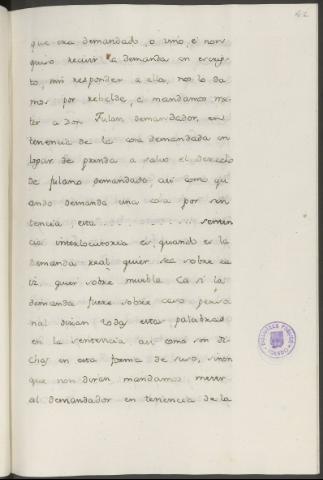 42
que era demandado, o vino, é non
quiso recivir la demanda en escrip-
to, nin responder a ella, nos lo da
mos por rebelde, é mandamos me-
ter a Don Fulan demandador, en
tenencia de la cosa demandada en
logar de prenda a salvo el derecho
de fulano demandado, asi como qu
ando demanda una cosa por sen
tencia, esta . . . . . . . . . . . senten
cia interlocutoria es, quando es la
demanda real quier sea sobre ra
iz, quier sobre mueble Ca si la
demanda fuere sobre cosa perso
nal dirian todas estas palabras
en la sentencia asi como son di
chas en esta forma de suso, sinon
que non diran mandamos meter
al demandador en tenencia de la
TOLEDO